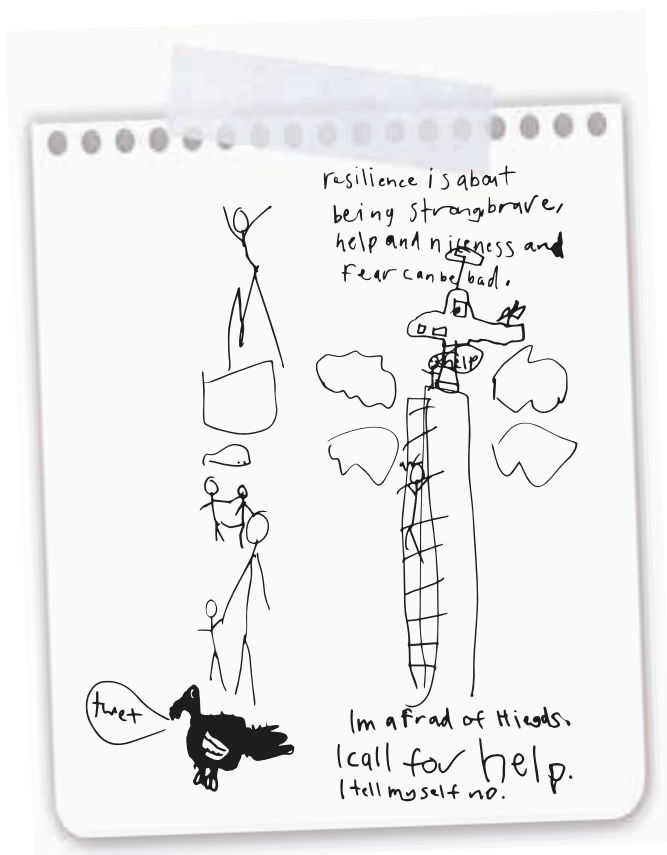 resilience is about
being strong, brave,
help and niceness and
fear can be bad.
help
twet
Im afrad of Hieads.
I call for help.
I tell my self no.